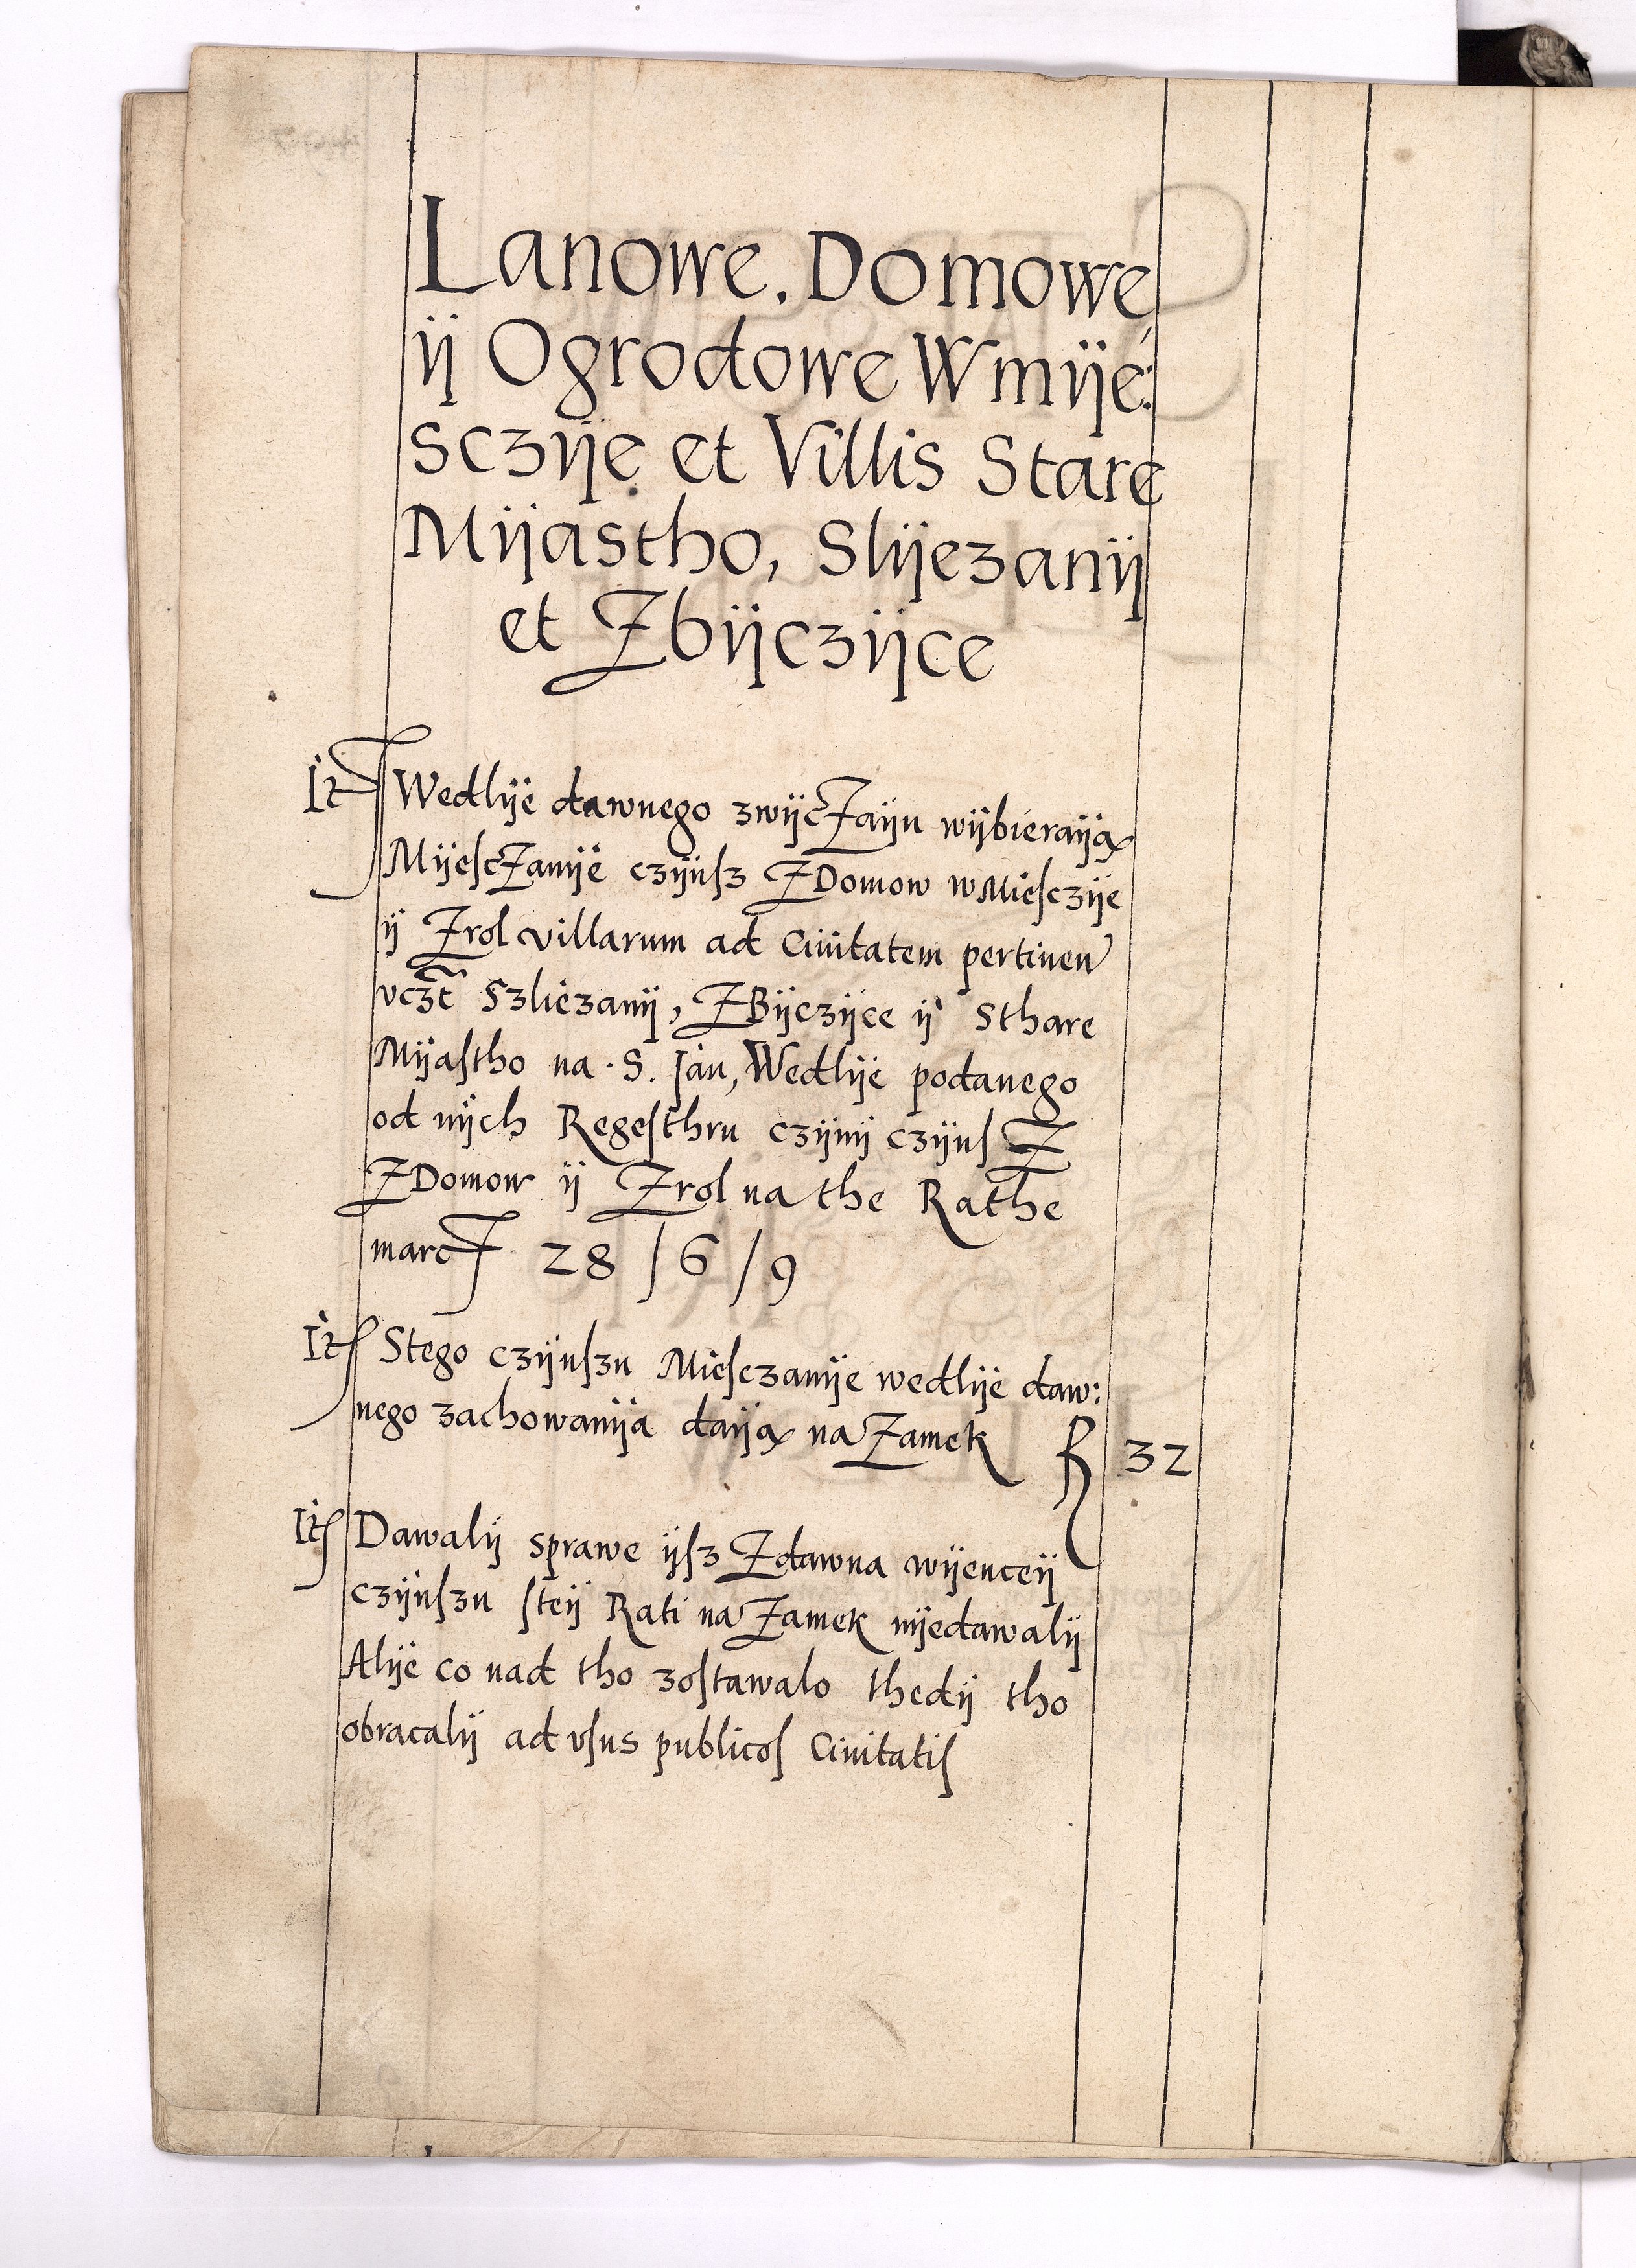 Lanowe. Domowe
ÿ Ogrodowe Wmÿe:
sczÿe et Villis Stare
Mÿastho, Slÿezanÿ
et Zbÿczÿce
It Wedlÿe dawnego zwÿcZaÿu wÿbieraÿą
MÿeſcZanÿe czÿnſz ZDomow wMieſczÿe
ÿ Zrol villarum ad Ciuitatem pertinen
vczt Szliezanÿ, ZBÿczÿce ÿ Sthare
Mÿaſtho na. S. Jan, Wedlÿe podanego
od nÿch Regeſthru czÿnÿ czÿnſ Z
ZDomow ÿ Zrol na the Rathe
marc 28 / 6 / 9
It Stego czÿnſzu Mieſczanÿe wedlÿe daw:
nego zachowanÿa daÿą na Zamek 32
It Dawalÿ sprawe ÿſz Zdawna wÿenceÿ
czÿnſzu ſteÿ Rati na Zamek nÿedawalÿ
Alÿe co nad tho zoſtawalo thedÿ tho
obracalÿ ad vſus publicoſ Ciuitatiſ